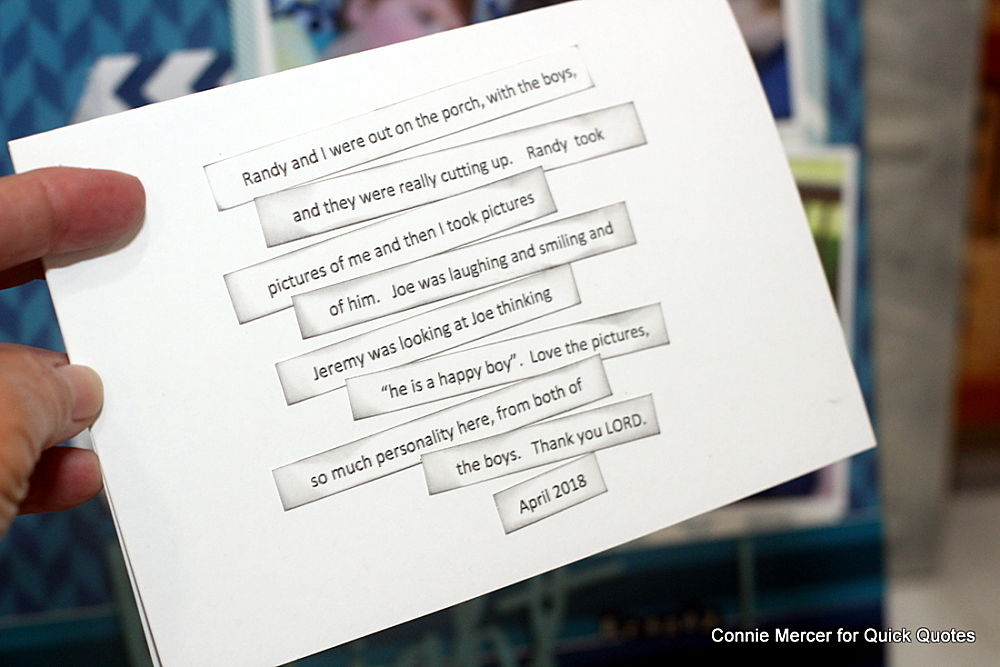 Randy and I were out on the porch, with the boys,
and they were really cutting up. Randy took
pictures of me and then I took pictures
of him. Joe was laughing and smiling and
Jeremy was looking at Joe thinking
“he is a happy boy”. Love the pictures,
so much personality here, from both of
the boys. Thank you LORD.
April 2018
Connie Mercer for Quick Quotes